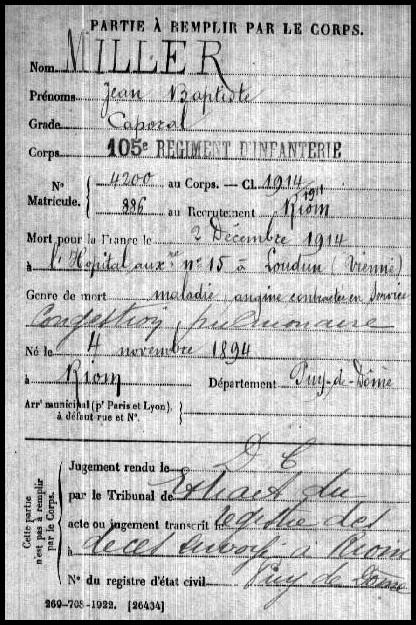 PARTIE À REMPLIR PAR LE CORPS.
Nom MILLER
Prénoms Jean Baptiste
Grade Caporal
Corps 105e REGIMENT D'INFANTERIE
N° Matricule. 4200 au Corps. — Cl. 1914
886 au Recrutement Riom 1911
Mort pour la France le 2 Décembre 1914
à l'Hopital auxre n° 15 à Loudun (Vienne)
Genre de mort maladie angine contractée en service
Congestion pulmonaire
Né le 4 novembre 1894
à Riom Département Puy-de-Dôme
Arrt municipal (pr Paris et Lyon),
à défaut rue et N°.
Cette partie n'est pas à remplir par le Corps.
Jugement rendu le D C
par le Tribunal de Extrait du
acte ou jugement transcrit le registre des
à décès envoyé à Riom
N° du registre d'état civil Puy de Dôme
269-708-1922. [26434]